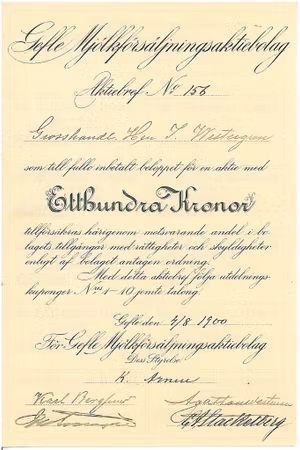 Gefle Mjölkförsäljningsaktiebolag
Aktiebref No 156
Grosshandl. Herr I. Westergren
som till fullo inbetalt beloppet för en aktie med
Etthundra Kronor
tillförsäkras härigenom motsvarande andel i bo-
lagets tillgångar med rättigheter och skyldigheter
enligt af bolaget antagen ordning.
Med detta aktiebref följa utdelnings-
kuponger Nris 1-10 jemte talong.
Gefle den 4/8 1900
För Gefle Mjölkförsäljningsaktiebolag
Dess Styrelse
K.
Karl Berglund
Stackelberg